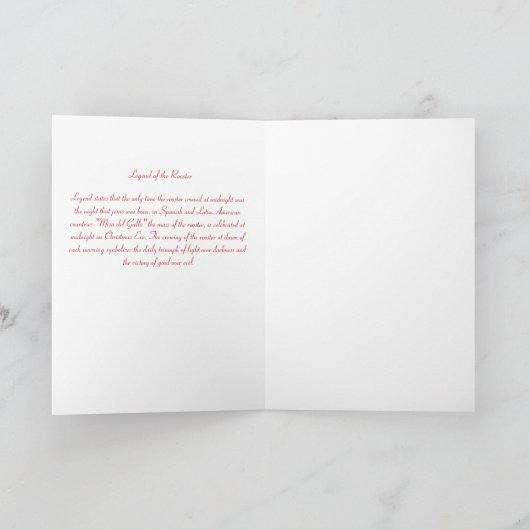 Legend of the Rooster
Legend states that the only time the rooster crowed at midnight was
the night that jesus was born. in Spanish and Latin American
countries "Misa del Gallo" the mass of the rooster, is celebrated at
midnight on Christmas Eve. The crowing of the rooster at dawn of
each morning symbolizes the daily triumph of light over darkness and
the victory of good over evil.